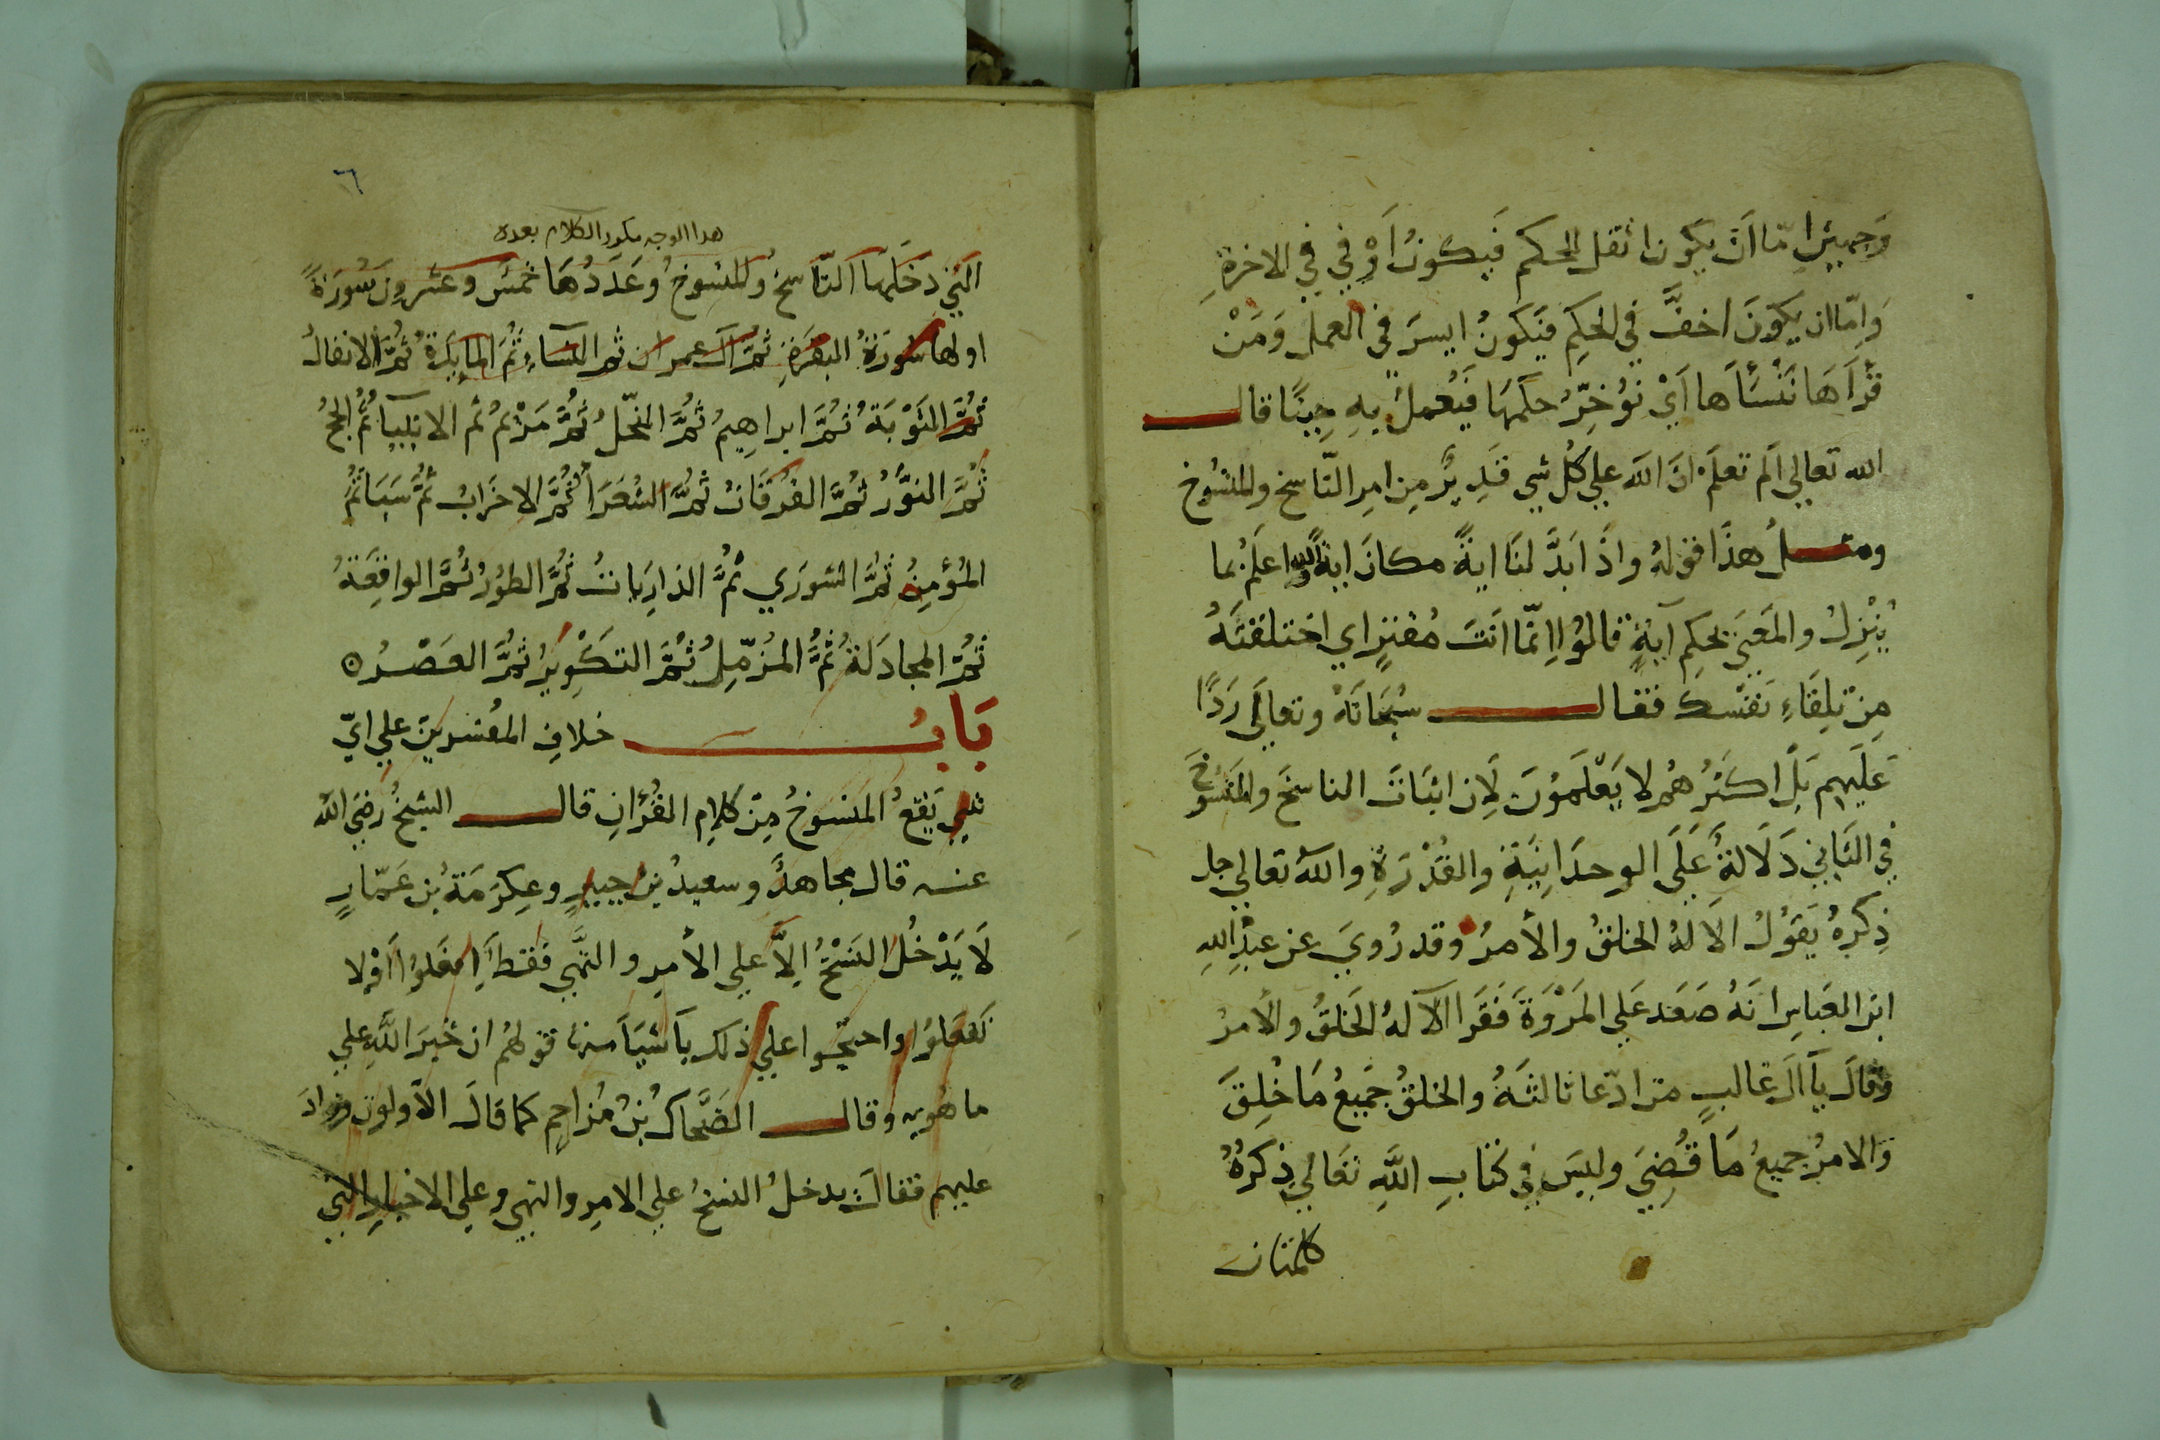 وَجهين اِمّا اَنْ يكون اثقل الحكم فَيكونُ اَوْفي في الاخرةِ
وَاِمّا ان يكوَنَ اخفَّ في الحكِم فيَكونُ ايسرَ في العملِ وَمَنْ
قرأَهَا نَنْسَأَها اَيْ نؤُخِّرُ حكمَهَا فَيُعملُ بِهِ حِينًا قال
الله تعالي اَلم تعلَمْ انَّ اللهَ علي كُل شي قَدِيرٌ مِن امرِ النّاسخ والمنسُوخ
ومثلُ هذَا قولهُ واذَا بَدَّلنَا ايَةً مكانَ ايةً والله اعلَمُ بما
يُنْزِلُ والمَعنيَ بحكِم آيةٍ قالوُا اِنمّا انَتَ مُفترٍ اي اختلقتَهُ
مِنْ تِلِقَاءِ نَفسْكَ فقال سُبْحَانَهُ وتعالَي رَدًّا
عَلَيهِم بَلْ اكثَرُ هُمْ لا يَعْلَمُوْنَ لَاِن اثبَاتَ الناسخَ والمَنسُوْخَ
في الثاني دَلَالةً عَلَى الوحدَانِيَةِ والقُدْرَةِ واللهُ تعالي جل
ذِكرُهُ يَقوُلُ اَلَا لهُ الخلقُ والأمرُ وقد رُويَ عن عبْدِ اللهِ
ابن العَبّاسِ اَنهُ صَعَد عَلي المَرْوَةَ فَقَرَا اَلآ لهُ الخَلقُ والأمرُ
وقَالَ يآ اَلَ غالبٍ من ادّعا ثالثهُ والخلقُ جَميعُ مَا خُلِقَ
والامرُ جميعُ مَا قُضِيَ وليسَ في كتابِ اللَّهِ تعَالي ذِكرُهُ
كلمتان
٦
هذا الوجه مكرر الكلام بعده
التي دَخَلَهَا النّاَسخُ والمنسُوخُ وعَدَدُهَا خمَسٌ وعشرونَ سُورَةً
اولها سُورَةُ البقَرَةِ ثمَّ آل عمران ثم النساءِ ثُمَ المايدَةُ ثمَّ الانفالُ
ثمَّ التَوْبَةُ ثمَّ ابراهِيمُ ثمَّ النحّلُ ثمَّ مَرْيمُ ثم الانبياَ ثمُّ الحجُ
ثمَّ النوُّرُ ثمَّ الفرُقَانُ ثمَّ الشعَرَاُ ثمَّ الاحزَابُ ثمَّ سَبَا ثمَّ
المؤمنُ ثمَّ الشورَي ثمَّ الذارِيَاتُ ثمَّ الطوُرُ ثمَّ الواقِعَةُ
ثمَّ المجادَلةُ ثمَّ المزُمّلُ ثمَّ التكوْيِرُ ثمَّ العَصْرُ
بَابُ خلافِ المفُسرينَ علي ايّ
شيٍ يَقعُ المَنسوخُ مِنْ كلامِ القُرْانِ قال الشيخُ رَضيَ اللهُ
عنه قال مجاهدٌ وسعيدُ بنُ جبيرٍ وعِكرَمَةُ بن عَمّارٍ
لَا يَدْخُلُ النَسْخُ اِلاَّ علي الأمرِ والنَّهي فَقطْ اِفعَلوُا اَوْلا
تفعَلوُا واحتجّوا علي ذلك بآشيَاَ منها قولهُم ان خَبَرَ اللَّهِ علي
ما هُو به وقال الضَحَّاكُ بنُ مُزاحِمٍ كما قَالَ الأولون وزادَ
عليهم فقالَ يدخلُ النسخُ علي الامِرِ والنهيِ وعلي الاخبارِ التي